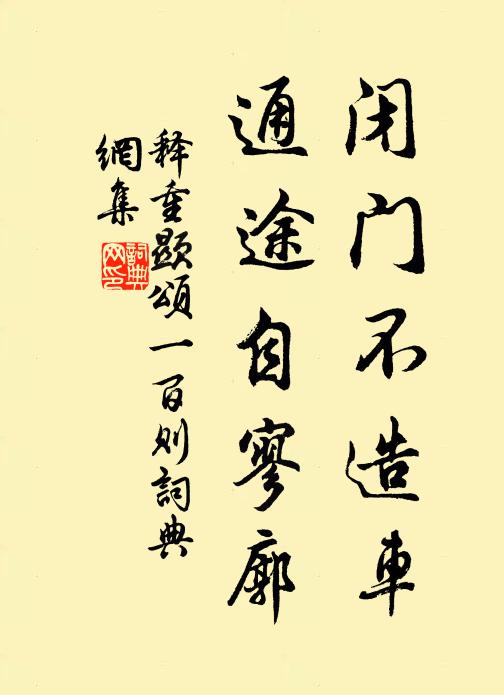 闭门不造車
通途自寥廓
释重顯頌一百则詞典
網集
詞典网印